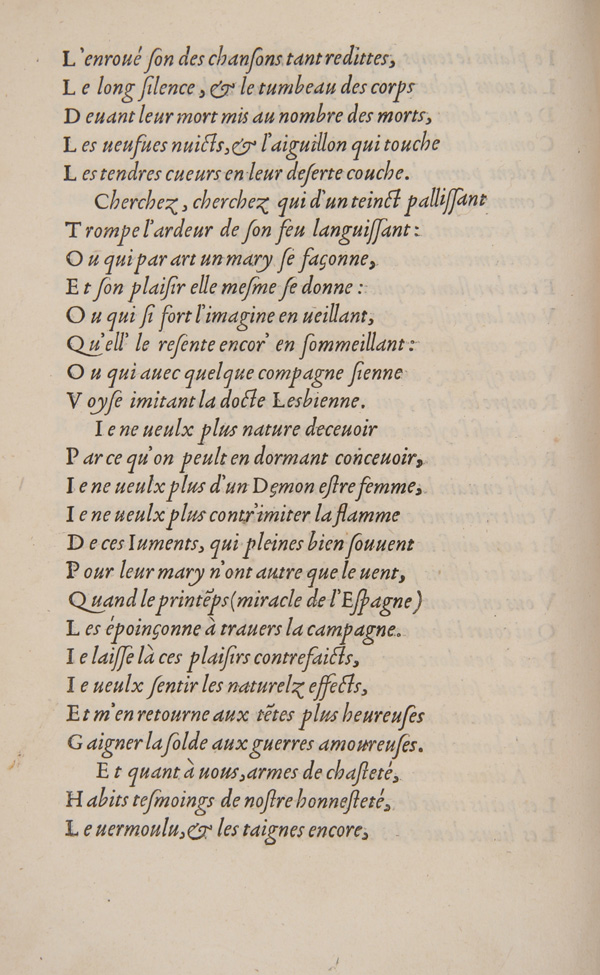 L'enroué ſon des chanſons tant redittes,
Le long ſilence, & le tumbeau des corps
Deuant leur mort mis au nombre des morts,
Les ueufues nuicts, & l'aiguillon qui touche
Les tendres cueurs en leur deſerte couche.
Cherchez, cherchez qui d'un teinct palliſſant
Trompe l'ardeur de ſon feu languiſſant:
Ou qui par art un mary ſe façonne,
Et ſon plaiſir elle meſme ſe donne:
Ou qui ſi fort l'imagine en ueillant,
Qu'ell' le reſente encor' en ſommeillant:
Ou qui auec quelque compagne ſienne
Voyſe imitant la docte Lesbienne.
Ie ne ueulx plus nature deceuoir
Par ce qu'on peult en dormant conceuoir,
Ie ne ueulx plus d'un Dęmon eſtre femme,
Ie ne ueulx plus contr'imiter la flamme
De ces Iuments, qui pleines bien ſouuent
Pour leur mary n'ont autre que le uent,
Quand le printẽps (miracle de l'Eſpagne)
Les époinçonne à trauers la campagne.
Ie laiſſe là ces plaiſirs contrefaicts,
Ie ueulx ſentir les naturelz effects,
Et m'en retourne aux tẽtes plus heureuſes
Gaigner la ſolde aux guerres amoureuſes.
Et quant à uous, armes de chaſteté,
Habits teſmoings de noſtre honneſteté,
Le uermoulu, & les taignes encore,